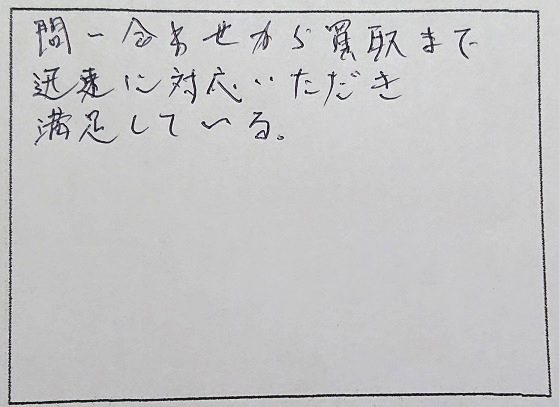 問い合わせから買取まで
迅速に対応いただき
満足している。